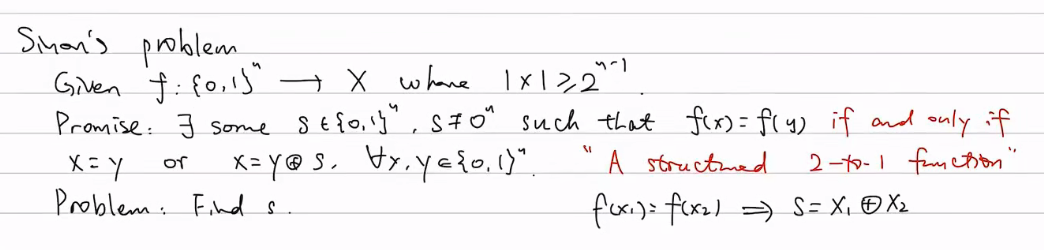 Simon's problem
Given f: {0,1}ⁿ ⟶ X where |X| ⩾ 2ⁿ⁻¹.
Promise: ∃ some s ∈ {0,1}ⁿ, s ≠ 0ⁿ such that f(x) = f(y) if and only if
x = y or x = y ⊕ s, ∀x, y ∈ {0,1}ⁿ. "A structured 2-to-1 function"
Problem: Find s. f(x₁) = f(x₂) ⟹ s = x₁ ⊕ x₂